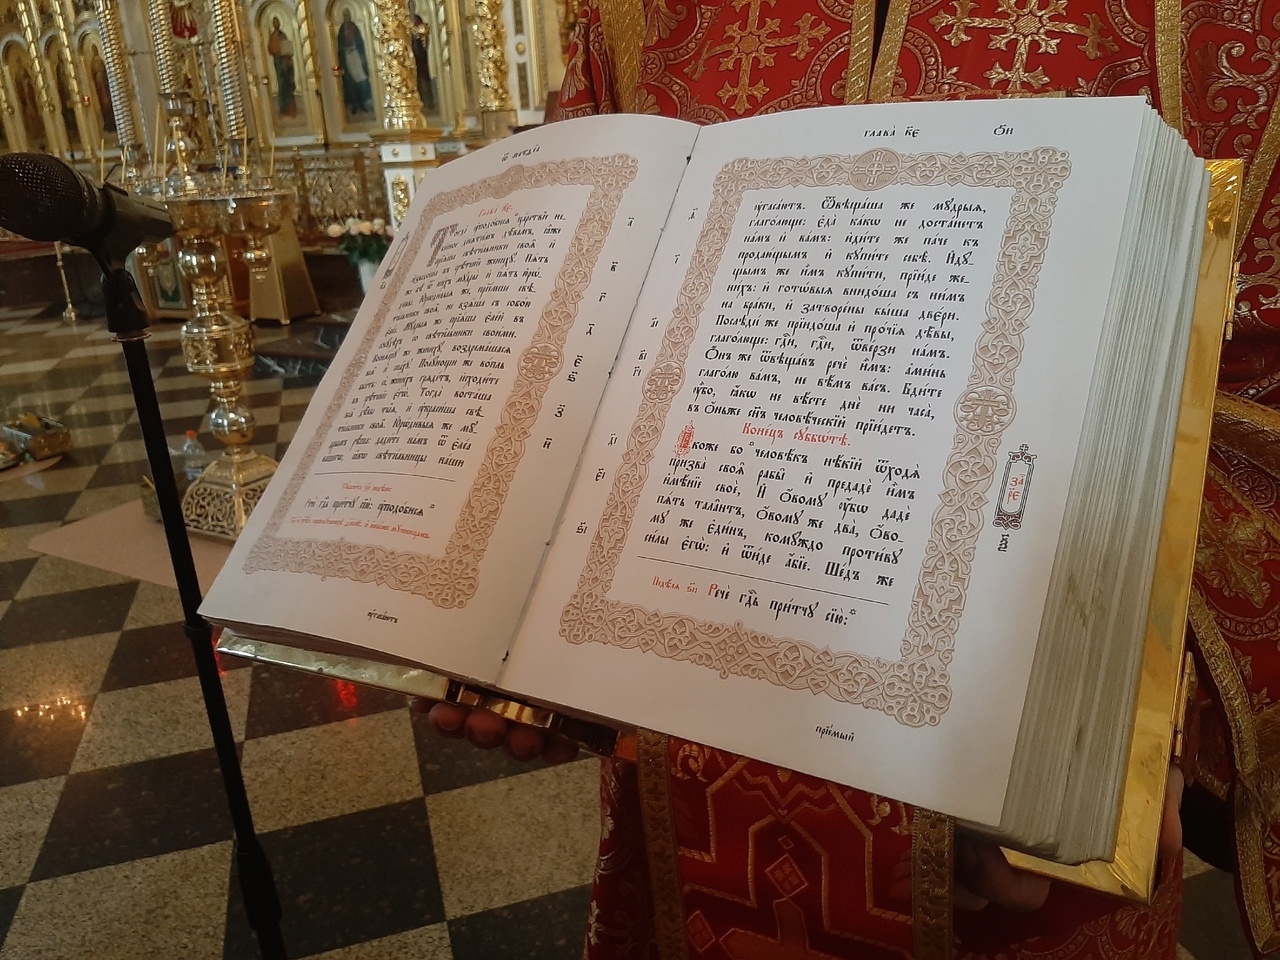 Ѿ матѳеа
Глава к҃е.
Тогда ᲂу҆подобисѧ ца́рствїе не-
бесное десѧтимъ дѣвамъ, ꙗ҆́же
прїѧша свѣтильники своѧ̑ и҆
и҆зыдоша въ срѣтенїе жениху̀. Пѧть
же бѣ̀ ѿ ни́хъ мꙋ̑дры и҆ пѧть ю҆рѡ́-
дивы. Ю҆рѡдивыѧ же, прїемшѧ свѣ-
тильники своѧ̑, не взѧша съ собою
є҆леа. Мꙋ̑дрыѧ же прїѧша є҆лей въ
сосꙋдѣхъ со свѣтильники своими.
Коснѧщꙋ же жениху̀, воздремашасѧ
всѧ̑ и҆ спа́хꙋ. Полꙋнощи же вопль
бысть: сѐ, жених̀ъ грѧдетъ, и҆сходите
въ срѣтенїе є҆гѡ̀. Тогда̀ восташа
всѧ̑ дѣвы ты̑ѧ, и҆ ᲂу҆красиша свѣ-
тильники своѧ̑. Ю҆рѡдивыѧ же мꙋ-
дрымъ рѣша: дадите намъ ѿ є҆леа
вашегѡ, ꙗ҆́кѡ свѣтильницы наши
Речѐ гдⷭ҇ь при́тчꙋ сїю̀: ᲂу҆подобисѧ
ᲂу҆гасаютъ
а҃
в҃
г҃
д҃
є҃
ѕ҃
з҃
и҃
глава̀ к҃є ѻ҃и
ᲂу҆гаса́ютъ. Ѿвѣща́ша же мꙋ̑дрыѧ,
глаго́лющє: є҆да̀ ка́кѡ не доста́нетъ
на́мъ и҆ ва́мъ: и҆ди́те же па́че къ
продаю́щымъ и҆ кꙋпи́те себѣ̀. И҆дꙋ́-
щымъ же и҆̀мъ кꙋпи́ти, прїи́де же-
ни́хъ: и҆ гото́выѧ внидо́ша съ ни́мъ
на бра́ки, и҆ затворе́ны бы́ша две́ри.
Послѣди́ же прїидо́ша и҆ про́чїѧ дѣ̑вы,
глаго́лющѧ: гдⷭ҇и, гдⷭ҇и, ѿве́рзи на́мъ.
Ѻ҆́нъ же ѿвѣща́въ речѐ и҆̀мъ: а҆ми́нь
глаго́лю ва́мъ, не вѣ́мъ ва́съ. Бди́те
ᲂу҆̀бо, ꙗ҆́кѡ не вѣ́сте днѐ ни часа̀,
въ ѻ҆́ньже сн҃ъ человѣ́ческїй прїи́детъ.
Коне́цъ сꙋббѡ́тѣ.
Ꙗ҆́коже бо человѣ́къ нѣ́кїй ѿходѧ̀
призва̀ своѧ̑ рабы̀ и҆ предадѐ и҆̀мъ
и҆мѣ́нїе своѐ, И҆ ѻ҆́вомꙋ ᲂу҆́бѡ дадѐ
пѧ́ть тала̑нтъ, ѻ҆́вомꙋ же два̀, ѻ҆́во-
мꙋ же є҆ди́нъ, комꙋ́ждо проти́вꙋ
си́лы є҆гѡ̀: и҆ ѿи́де а҆́бїе. Ше́дъ же
Недѣ́лѧ Речѐ гдⷭ҇ь при́тчꙋ сїю̀:
прїе́мый
і҃
а҃і
в҃і
г҃і
д҃і
є҃і
ѕ҃і
за
р҃е